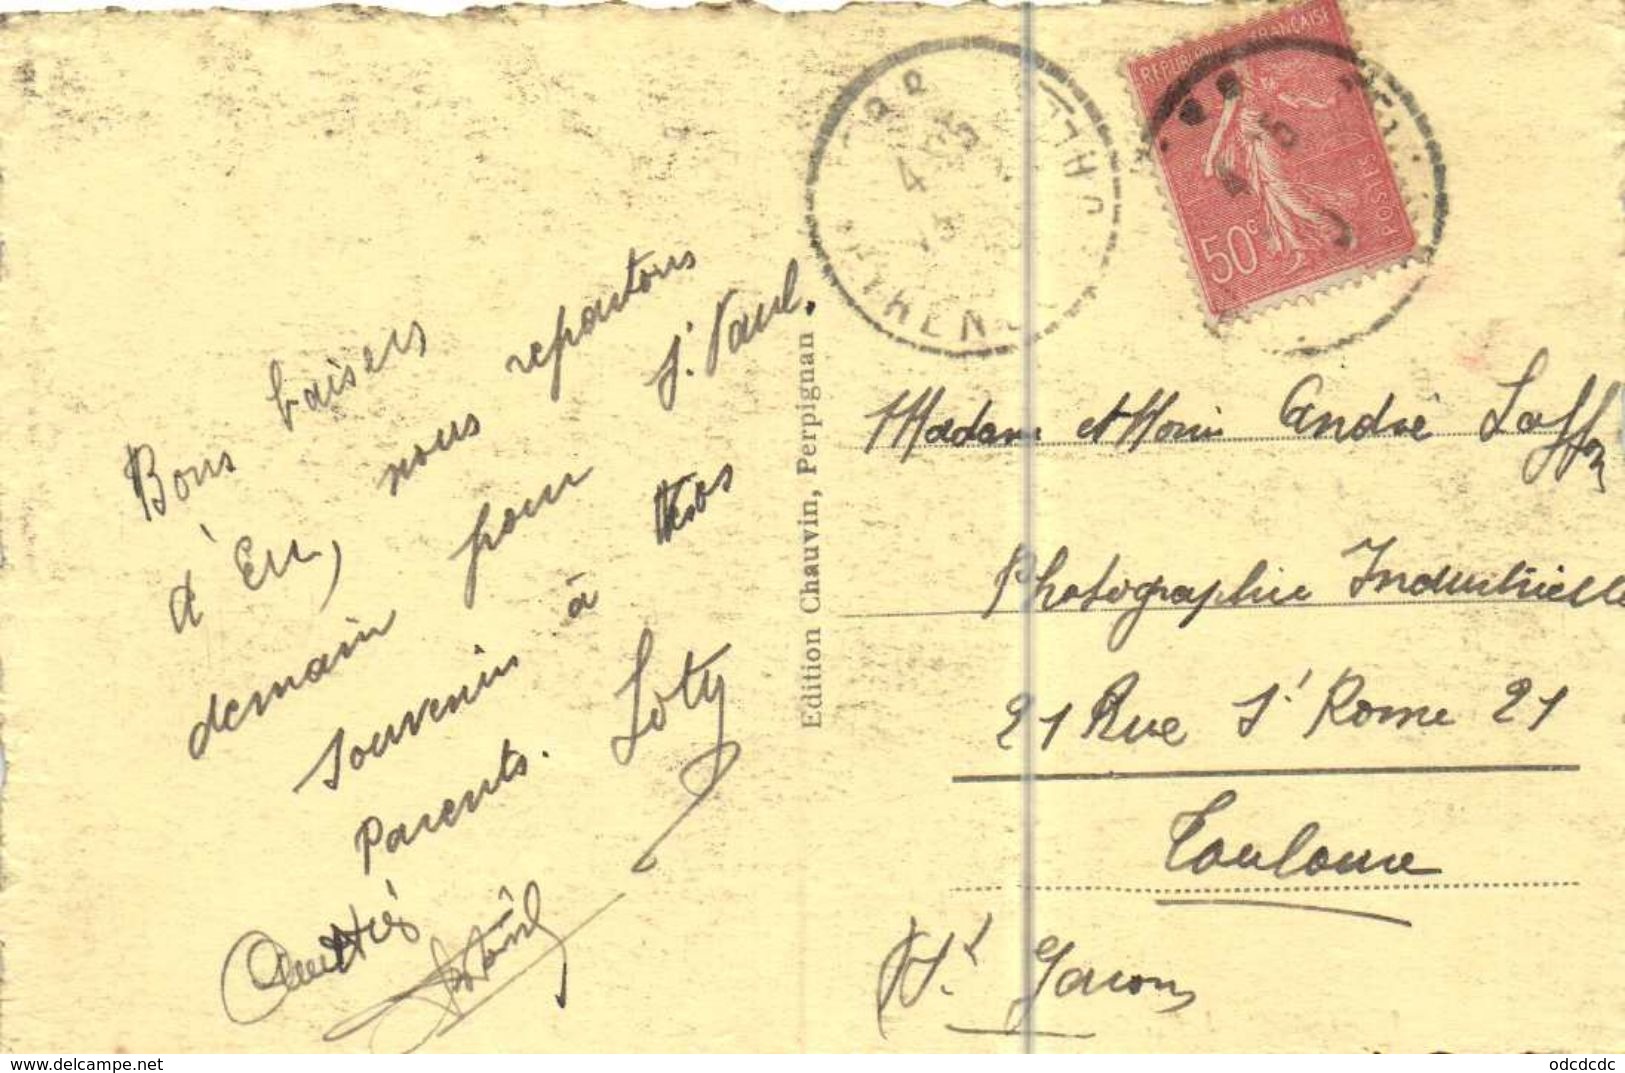 Bons baisers
d'Err, nous repartons
demain pour St Paul.
Souvenir à tes
Parents. Loty
Edition Chauvin, Perpignan
REPUBLIQUE FRANÇAISE
POSTES
50c
Madame et Monsr André Laffon
Photographie Industrielle
21 Rue St Rome 21
Toulouse
Hte Garonne
delcampe.net
odcdcdc